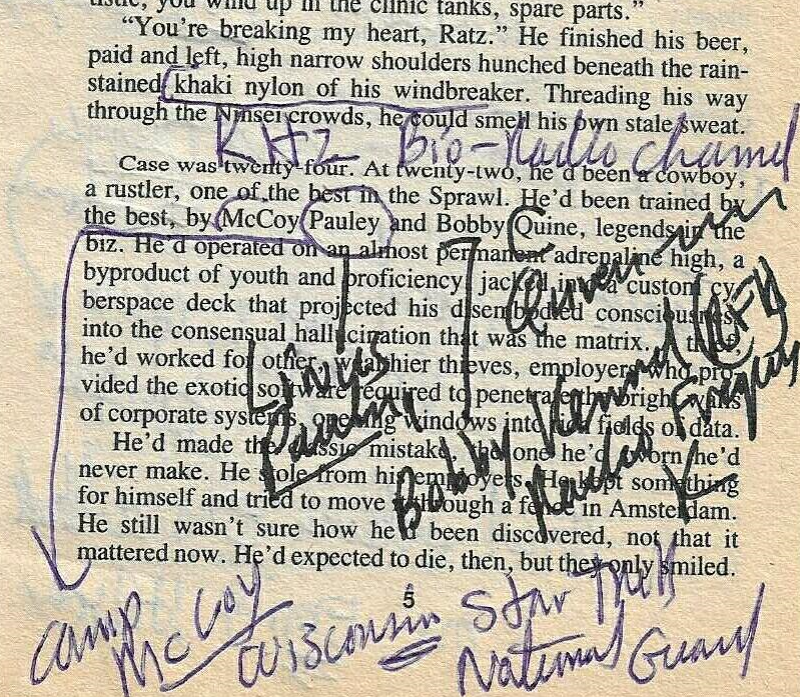 tistic, you wind up in the clinic tanks, spare parts.”
“You’re breaking my heart, Ratz.” He finished his beer,
paid and left, high narrow shoulders hunched beneath the rain-
stained khaki nylon of his windbreaker. Threading his way
through the Ninsei crowds, he could smell his own stale sweat.
KHZ Bio-Radio
Case was twenty-four. At twenty-two, he’d been a cowboy,
a rustler, one of the best in the Sprawl. He’d been trained by
the best, by McCoy Pauley and Bobby Quine, legends in the
biz. He’d operated on an almost permanent adrenaline high, a
byproduct of youth and proficiency, jacked into a custom cy-
berspace deck that projected his disembodied consciousness
into the consensual hallucination that was the matrix. A thief,
he’d worked for other, wealthier thieves, employers who pro-
vided the exotic software required to penetrate the bright walls
of corporate systems, opening windows into rich fields of data.
He’d made the classic mistake, the one he’d sworn he’d
never make. He stole from his employers. He kept something
for himself and tried to move it through a fence in Amsterdam.
He still wasn’t sure how he’d been discovered, not that it
mattered now. He’d expected to die, then, but they only smiled.
Queen
Linus
Pauling
Bobby
Radio
K
5
Camp
McCoy
Wisconsin
Star Trek
National Guard